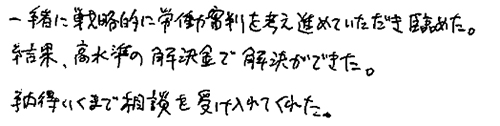 一緒に戦略的に労働審判を考え進めていただき臨めた。
結果、高水準の解決金で解決ができた。
納得いくまで相談を受け入れてくれた。